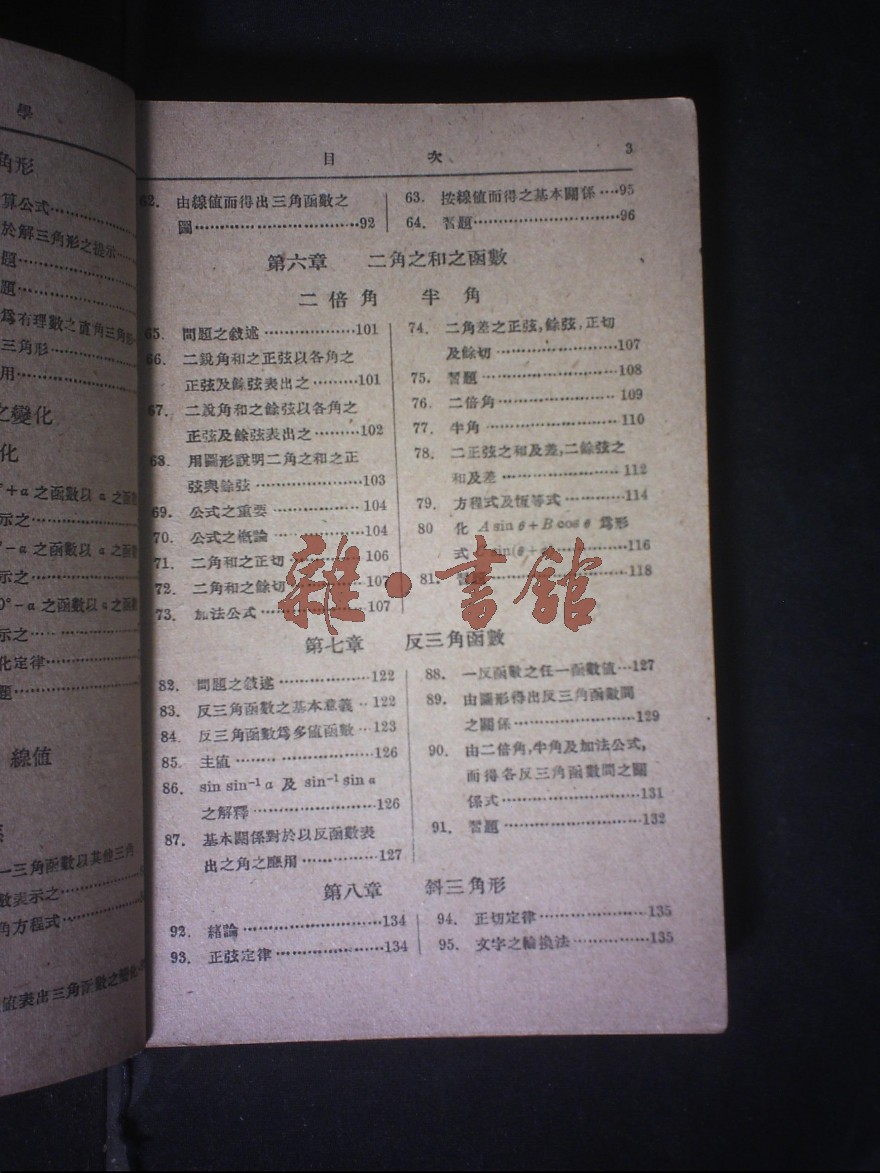 學
角形
算公式
於解三角形之提示
題
題
爲有理數之直角三角形
三角形
用
之變化
化
+α之函數以α之函數
示之
°−α之函數以α之函數
示之
0°−α之函數以α之函數
示之
化定律
題
線值
一三角函數以其他三角
數表示之
角方程式
值表出三角函數之變化
目 次 3
62. 由線值而得出三角函數之
圖……92
63. 按線值而得之基本關係…95
64. 習題……96
第六章 二角之和之函數
二倍角 半角
65. 問題之敘述……101
66. 二銳角和之正弦以各角之
正弦及餘弦表出之……101
67. 二銳角和之餘弦以各角之
正弦及餘弦表出之……102
68. 用圖形說明二角之和之正
弦與餘弦……103
69. 公式之重要……104
70. 公式之概論……104
71. 二角和之正切……106
72. 二角和之餘切……107
73. 加法公式……107
74. 二角差之正弦,餘弦,正切
及餘切……107
75. 習題……108
76. 二倍角……109
77. 半角……110
78. 二正弦之和及差,二餘弦之
和及差……112
79. 方程式及恆等式……114
80 化 A sin θ + B cos θ 爲形
式 sin(θ+……116
81. 習題……118
雜·書館
第七章 反三角函數
82. 問題之敘述……122
83. 反三角函數之基本意義…122
84. 反三角函數爲多值函數…123
85. 主值……126
86. sin sin⁻¹ α 及 sin⁻¹ sin α
之解釋……126
87. 基本關係對於以反函數表
出之角之應用……127
88. 一反函數之任一函數值…127
89. 由圖形得出反三角函數間
之關係……129
90. 由二倍角,半角及加法公式,
而得各反三角函數間之關
係式……131
91. 習題……132
第八章 斜三角形
92. 緒論……134
93. 正弦定律……134
94. 正切定律……135
95. 文字之輪換法……135